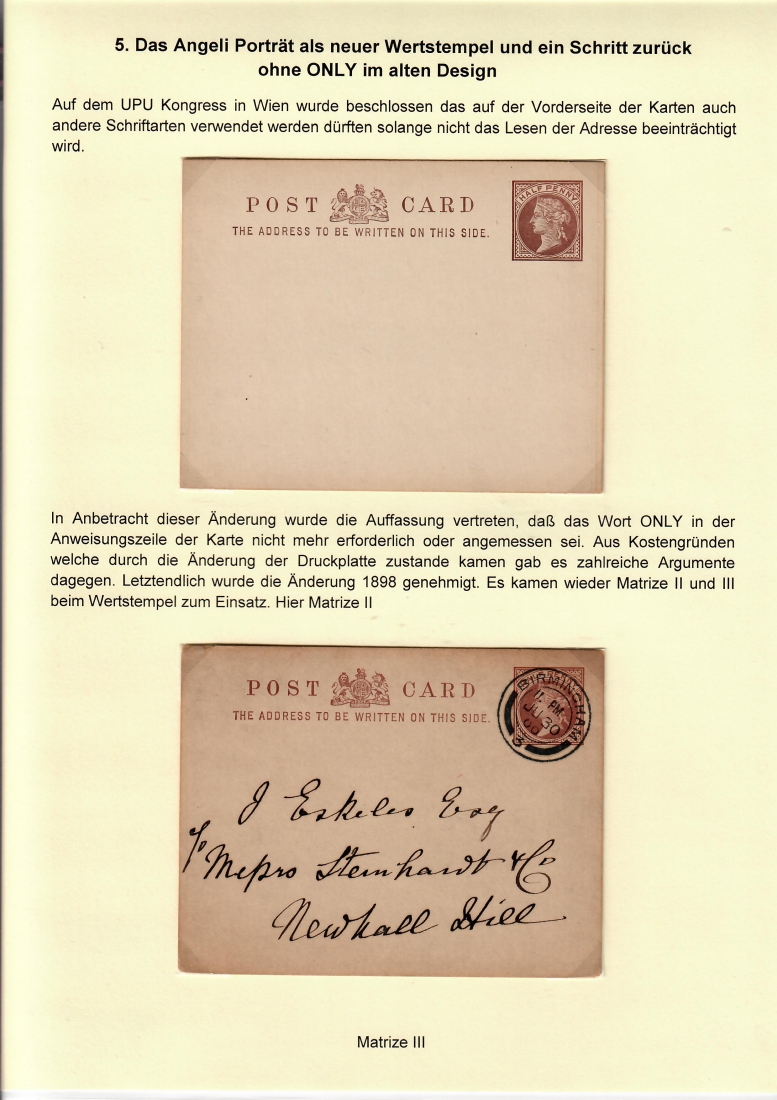 5. Das Angeli Porträt als neuer Wertstempel und ein Schritt zurück
ohne ONLY im alten Design
Auf dem UPU Kongress in Wien wurde beschlossen das auf der Vorderseite der Karten auch
andere Schriftarten verwendet werden dürften solange nicht das Lesen der Adresse beeinträchtigt
wird.
POST CARD
THE ADDRESS TO BE WRITTEN ON THIS SIDE.
HALFPENNY
In Anbetracht dieser Änderung wurde die Auffassung vertreten, daß das Wort ONLY in der
Anweisungszeile der Karte nicht mehr erforderlich oder angemessen sei. Aus Kostengründen
welche durch die Änderung der Druckplatte zustande kamen gab es zahlreiche Argumente
dagegen. Letztendlich wurde die Änderung 1898 genehmigt. Es kamen wieder Matrize II und III
beim Wertstempel zum Einsatz. Hier Matrize II
POST CARD
THE ADDRESS TO BE WRITTEN ON THIS SIDE.
BIRMINGHAM
11 PM
JU 30
3
J Eskeles Esq
c/o Messrs Steinhardt & Co
Newhall Hill
Matrize III